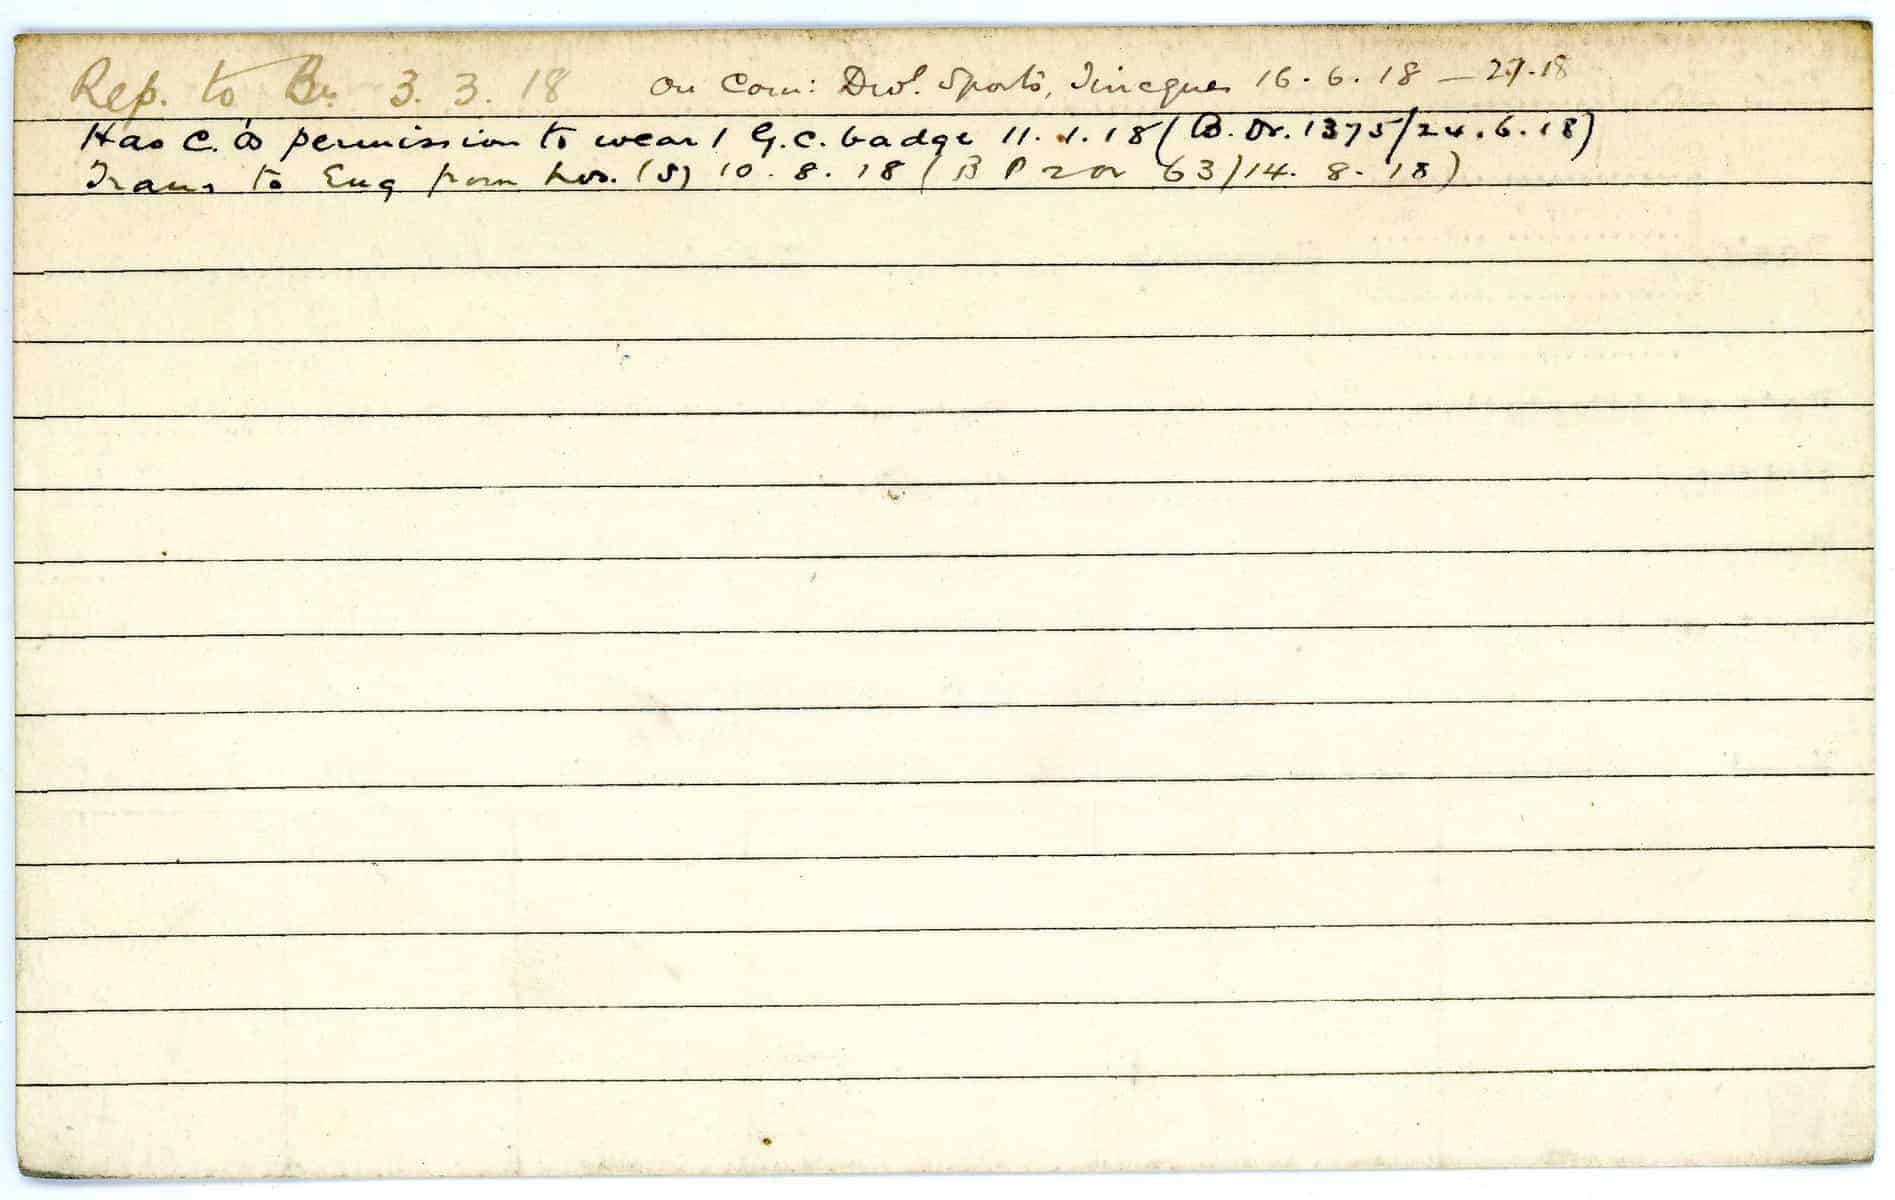 Rep. to Bn. 3. 3. 18 On Com: Divl. Sports, Tincques 16. 6. 18 — 2.7.18
Has C.O's permission to wear 1 G.C. badge 11. 1. 18 (B. Or. 1375/24.6.18)
Trans to Eng from (S) 10. 8. 18 (B P 2 or 63/14. 8. 18)